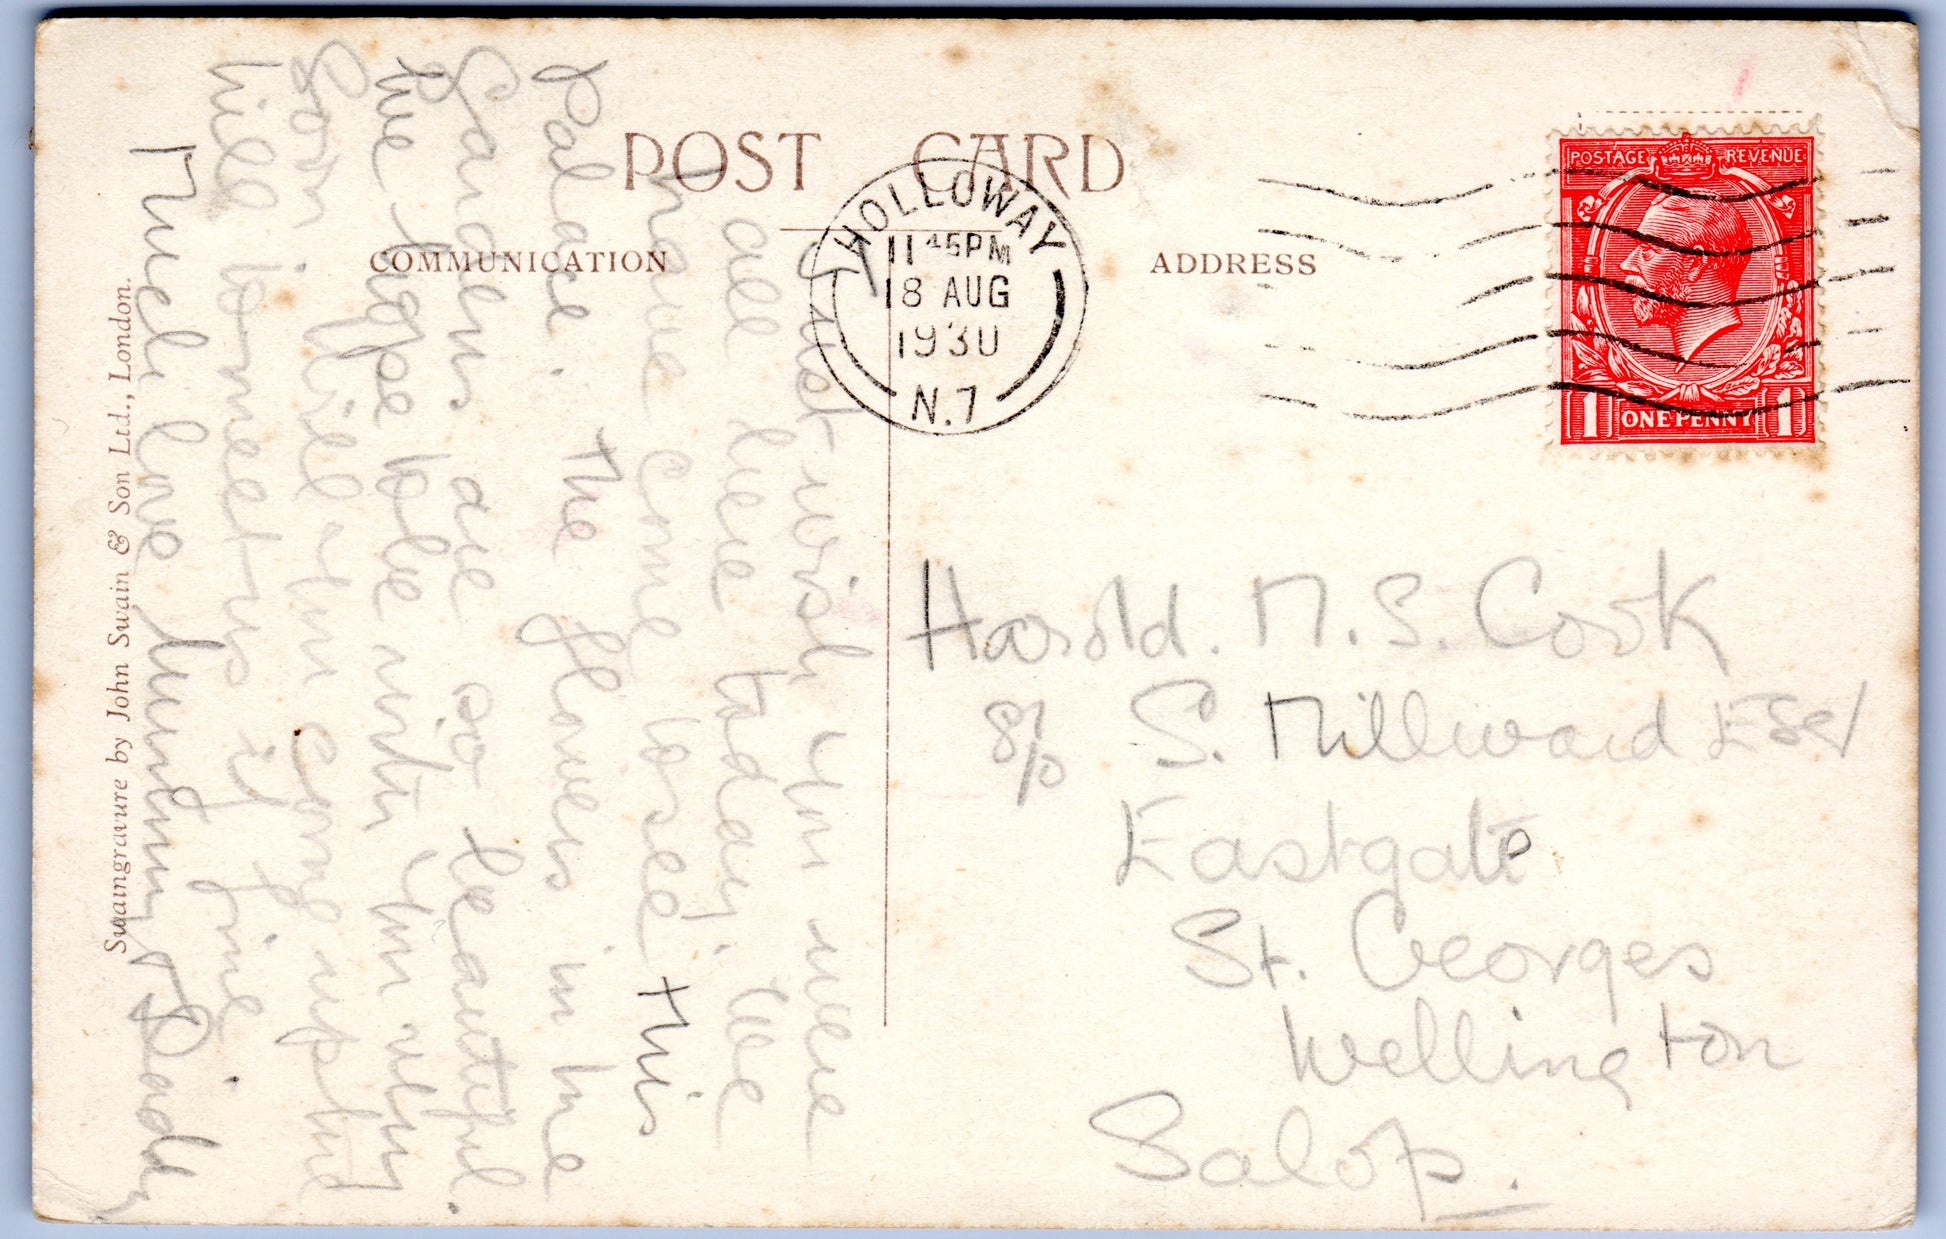 POST CARD
COMMUNICATION
ADDRESS
HOLLOWAY
11 45PM
18 AUG
1930
N.7
POSTAGE REVENUE
1 ONE PENNY 1
Just wish you were
all here today. We
have come to see this
Palace. The flowers in the
Gardens are so beautiful.
We hope to be with you very
soon. Will you come up and
to meet us if fine
Much love Mummy & Daddy
Swaingravure by John Swain & Son Ltd., London.
Harold. M. S. Cook
c/o S. Millward Esq
Eastgate
St. Georges
Wellington
Salop.